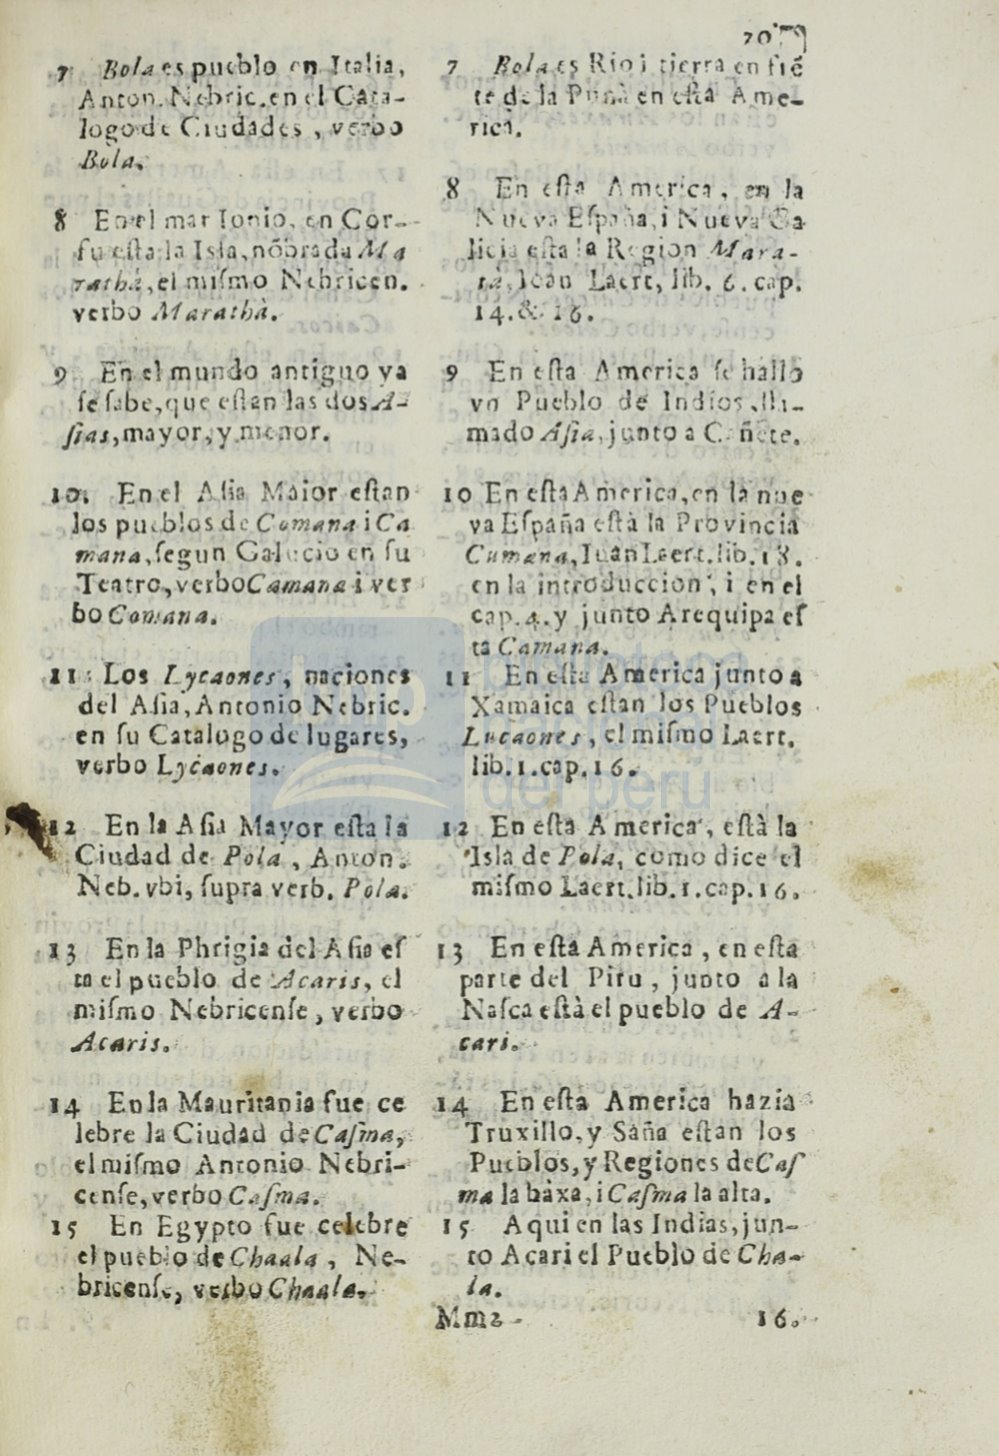 7 Bola es pueblo en Italia,
Anton. Nebric. en el Cata-
logo de Ciudades, verbo
Bola.
8 En el mar Ionio, en Cor-
fu esta la Isla, nõbrada Ma
rathà, el mismo Nebricen.
verbo Marathà.
9 En el mundo antiguo ya
se sabe, que estan las dos A-
sias, mayor, y menor.
10. En el Asia Maior estan
los pueblos de Comana i Ca
mana, segun Galucio en su
Teatro, verbo Camana i ver
bo Comana.
11 Los Lycaones, naciones
del Asia, Antonio Nebric.
en su Catalogo de lugares,
verbo Lycaones.
12 En la Asia Mayor esta la
Ciudad de Pola, Anton.
Neb. vbi, supra verb. Pola.
13 En la Phrigia del Asia es
ta el pueblo de Acaris, el
mismo Nebricense, verbo
Acaris.
14 En la Mauritania fue ce
lebre la Ciudad de Casma,
el mismo Antonio Nebri-
cense, verbo Casma.
15 En Egypto fue celebre
el pueblo de Chaala, Ne-
bricense, verbo Chaala.
7 Bola es Rio i tierra en frẽ
te de la Punà en esta Ame-
rica.
8 En esta America, en la
Nueva España, i Nueva Ga
licia esta la Region Mara-
tà, Iean Laert, lib. 6. cap.
14. & 16.
9 En esta America se hallò
vn Pueblo de Indios, lla-
mado Asia, junto a Cañete.
10 En esta America, en la nue
va España està la Provincia
Cumana, Iuan Laert. lib. 18.
en la introduccion, i en el
cap. 4. y junto Arequipa es
ta Camana.
11 En esta America junto a
Xamaica estan los Pueblos
Lucaones, el mismo Laert.
lib. 1. cap. 16.
12 En esta America, està la
Isla de Pola, como dice el
mismo Laert. lib. 1. cap. 16.
13 En esta America, en esta
parte del Piru, junto a la
Nasca està el pueblo de A-
cari.
14 En esta America hazia
Truxillo, y Saña estan los
Pueblos, y Regiones de Cas
ma la baxa, i Casma la alta.
15 Aqui en las Indias, jun-
to Acari el Pueblo de Cha-
la.
Mm2 16.
biblioteca
nacional
del perú